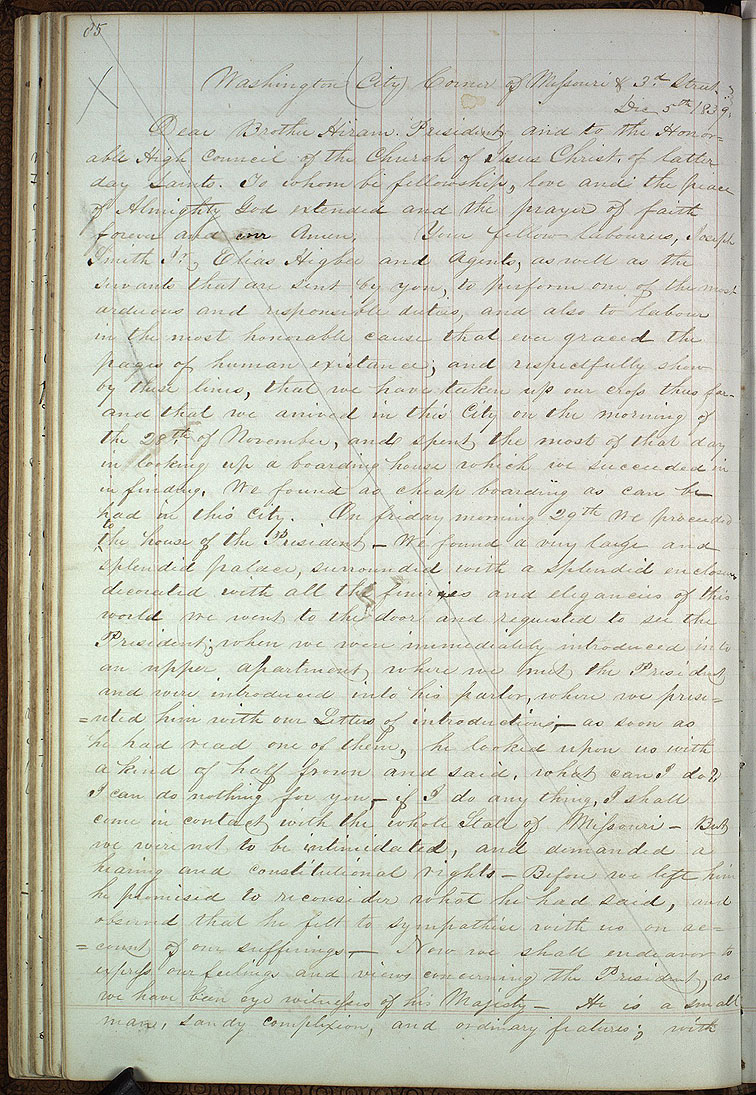 85
Washington (City) Corner of Missouri & 3.d Street
Dec 5th 1839.
Dear Brother Hiram. President and to the Honor-
able High Council of the Church of Jesus Christ, of latter
day Saints. To whom be fellowship, love and the peace
of Almighty God extended and the prayer of faith
forever and ever Amen. Your fellow labourers, Joseph
Smith Jr., Elias Higbee and Agents, as well as the
servants that are sent by you, to perform one of the most
arduous and responsible duties, and also to labour
in the most honorable cause that ever graced the
pages of human existance; and respectfully show
by these lines, that we have taken up our cross thus far-
and that we arrived in this City on the morning of
the 28th of November, and spent the most of that day
in looking up a boarding house which we succeeded in
in finding. We found as cheap boarding as can be
had in this City. On friday morning 29th we proceeded
to the house of the President — We found a very large and
splendid palace, surrounded with a splendid enclosure
decorated with all the fineries and elegancies of this
world we went to the door and requested to see the
President; when we were immediately introduced into
an upper apartment where we met the President
and were introduced into his parlor, where we prese-
=nted him with our Letters of introductions;— as soon as
he had read one of them, he looked upon us with
a kind of half frown and said, what can I do?
I can do nothing for you,— if I do any thing, I shall
come in contact with the whole State of Missouri — But
we were not to be intimidated, and demanded a
hearing and constitutional rights — Before we left him
he promised to reconsider what he had said, and
observed that he felt to sympathise with us on ac=
=count of our sufferings — Now we shall endeavor to
express our feelings and views concerning the President, as
we have been eye witnesses of his Majesty — He is a small
man, sandy complexion, and ordinary features; with